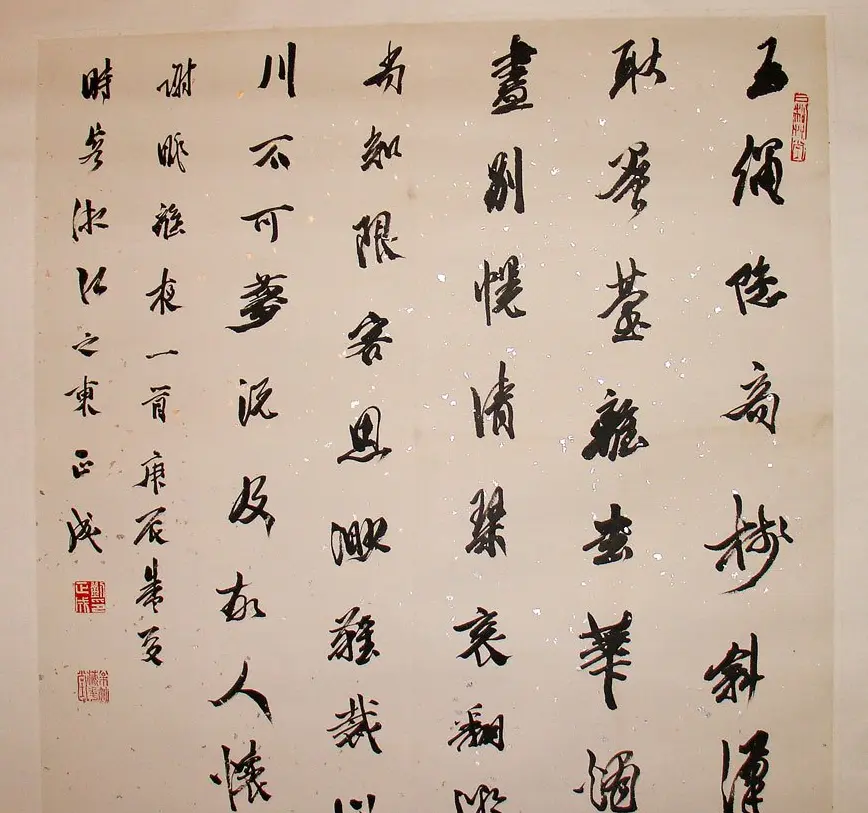 玉繩隱高樹斜漢
耿層臺離堂華燭
盡別幌清琴哀翻潮
尚知限客思渺難裁山
川不可夢況及故人懷
謝朓離夜一首庚辰歲夏
時客湘江之東正成